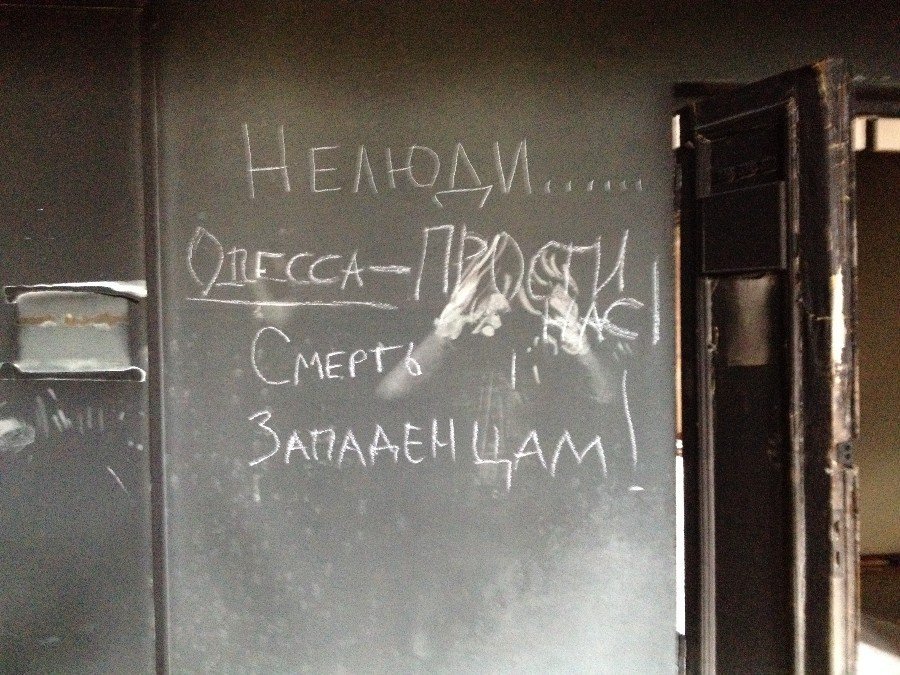 Нелюди......
Одесса – ПРОСТИ
НАС!
Смерть
Западенцам!